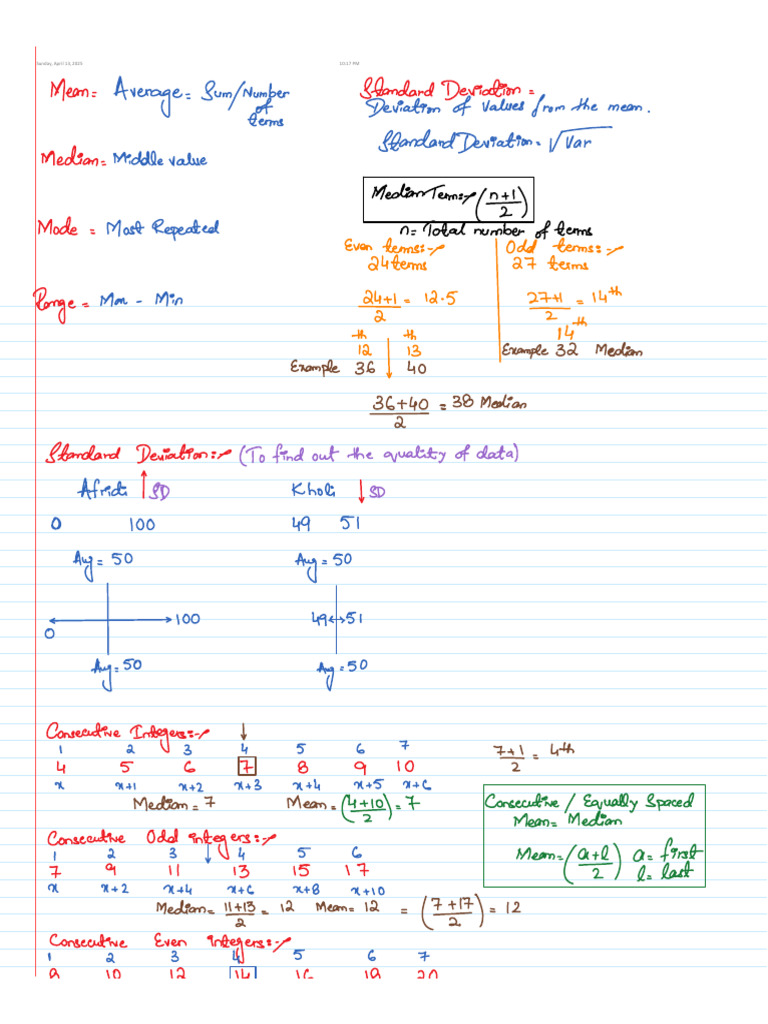 Sunday, April 13, 2025 10:17 PM
Mean = Average = Sum/Number of terms
Standard Deviation =
Deviation of values from the mean.
Standard Deviation = √Var
Median = Middle value
Median Term:- (n+1/2)
n = Total number of terms
Mode = Most Repeated
Even terms:-
24 terms
24+1/2 = 12.5
12th 13th
Example 36 40
36+40/2 = 38 Median
Odd terms:-
27 terms
27+1/2 = 14th
14th
Example 32 Median
Range = Max - Min
Standard Deviation:- (To find out the quality of data)
Afridi ↑ SD
Kholi ↓ SD
0 100
49 51
Avg = 50
Avg = 50
0 100
49 51
Avg = 50
Avg = 50
Consecutive Integers:-
1 2 3 4 5 6 7
4 5 6 7 8 9 10
x x+1 x+2 x+3 x+4 x+5 x+6
Median = 7 Mean = (4+10/2) = 7
7+1/2 = 4th
Consecutive / Equally Spaced
Mean = Median
Mean = (a+l/2) a = first
l = last
Consecutive Odd integers:-
1 2 3 4 5 6
7 9 11 13 15 17
x x+2 x+4 x+6 x+8 x+10
Median = 11+13/2 = 12 Mean = 12 = (7+17/2) = 12
Consecutive Even integers:-
1 2 3 4 5 6 7